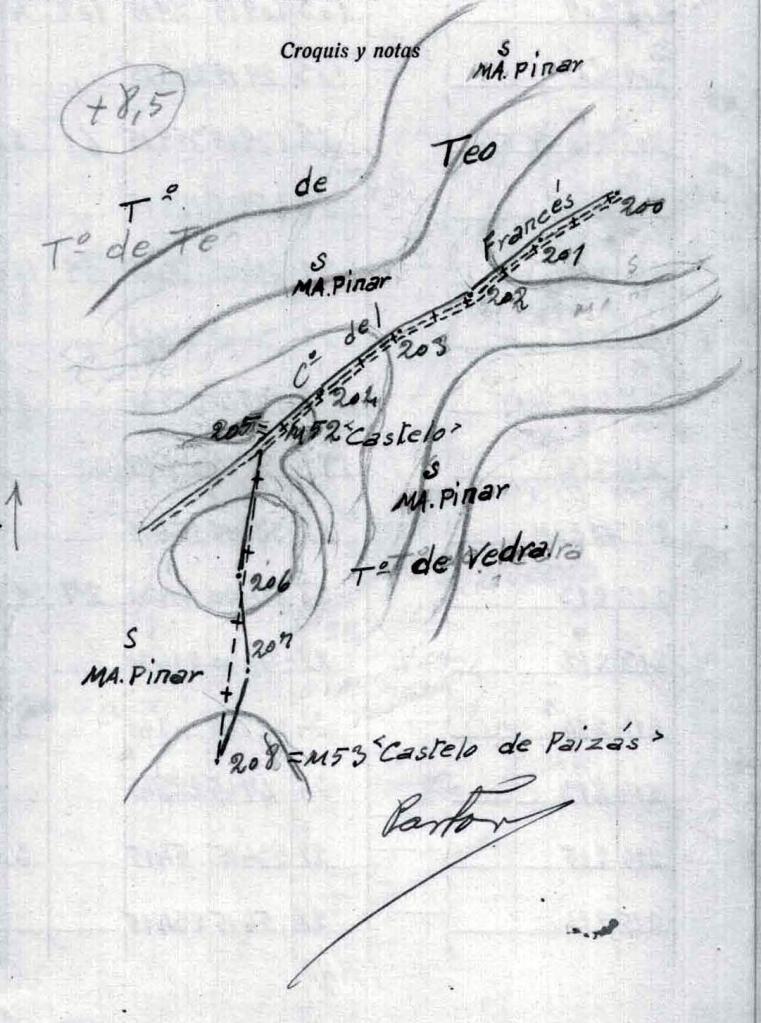 Croquis y notas
+8,5
S
MA. Pinar
Tº de Teo
Tº de Te
S
MA. Pinar
Cº del Francés
200
201
202
203
204
205=M52 "Castelo"
S
MA. Pinar
Tº de Vedra
206
207
S
MA. Pinar
208=M53 "Castelo de Paizás"
Pastor